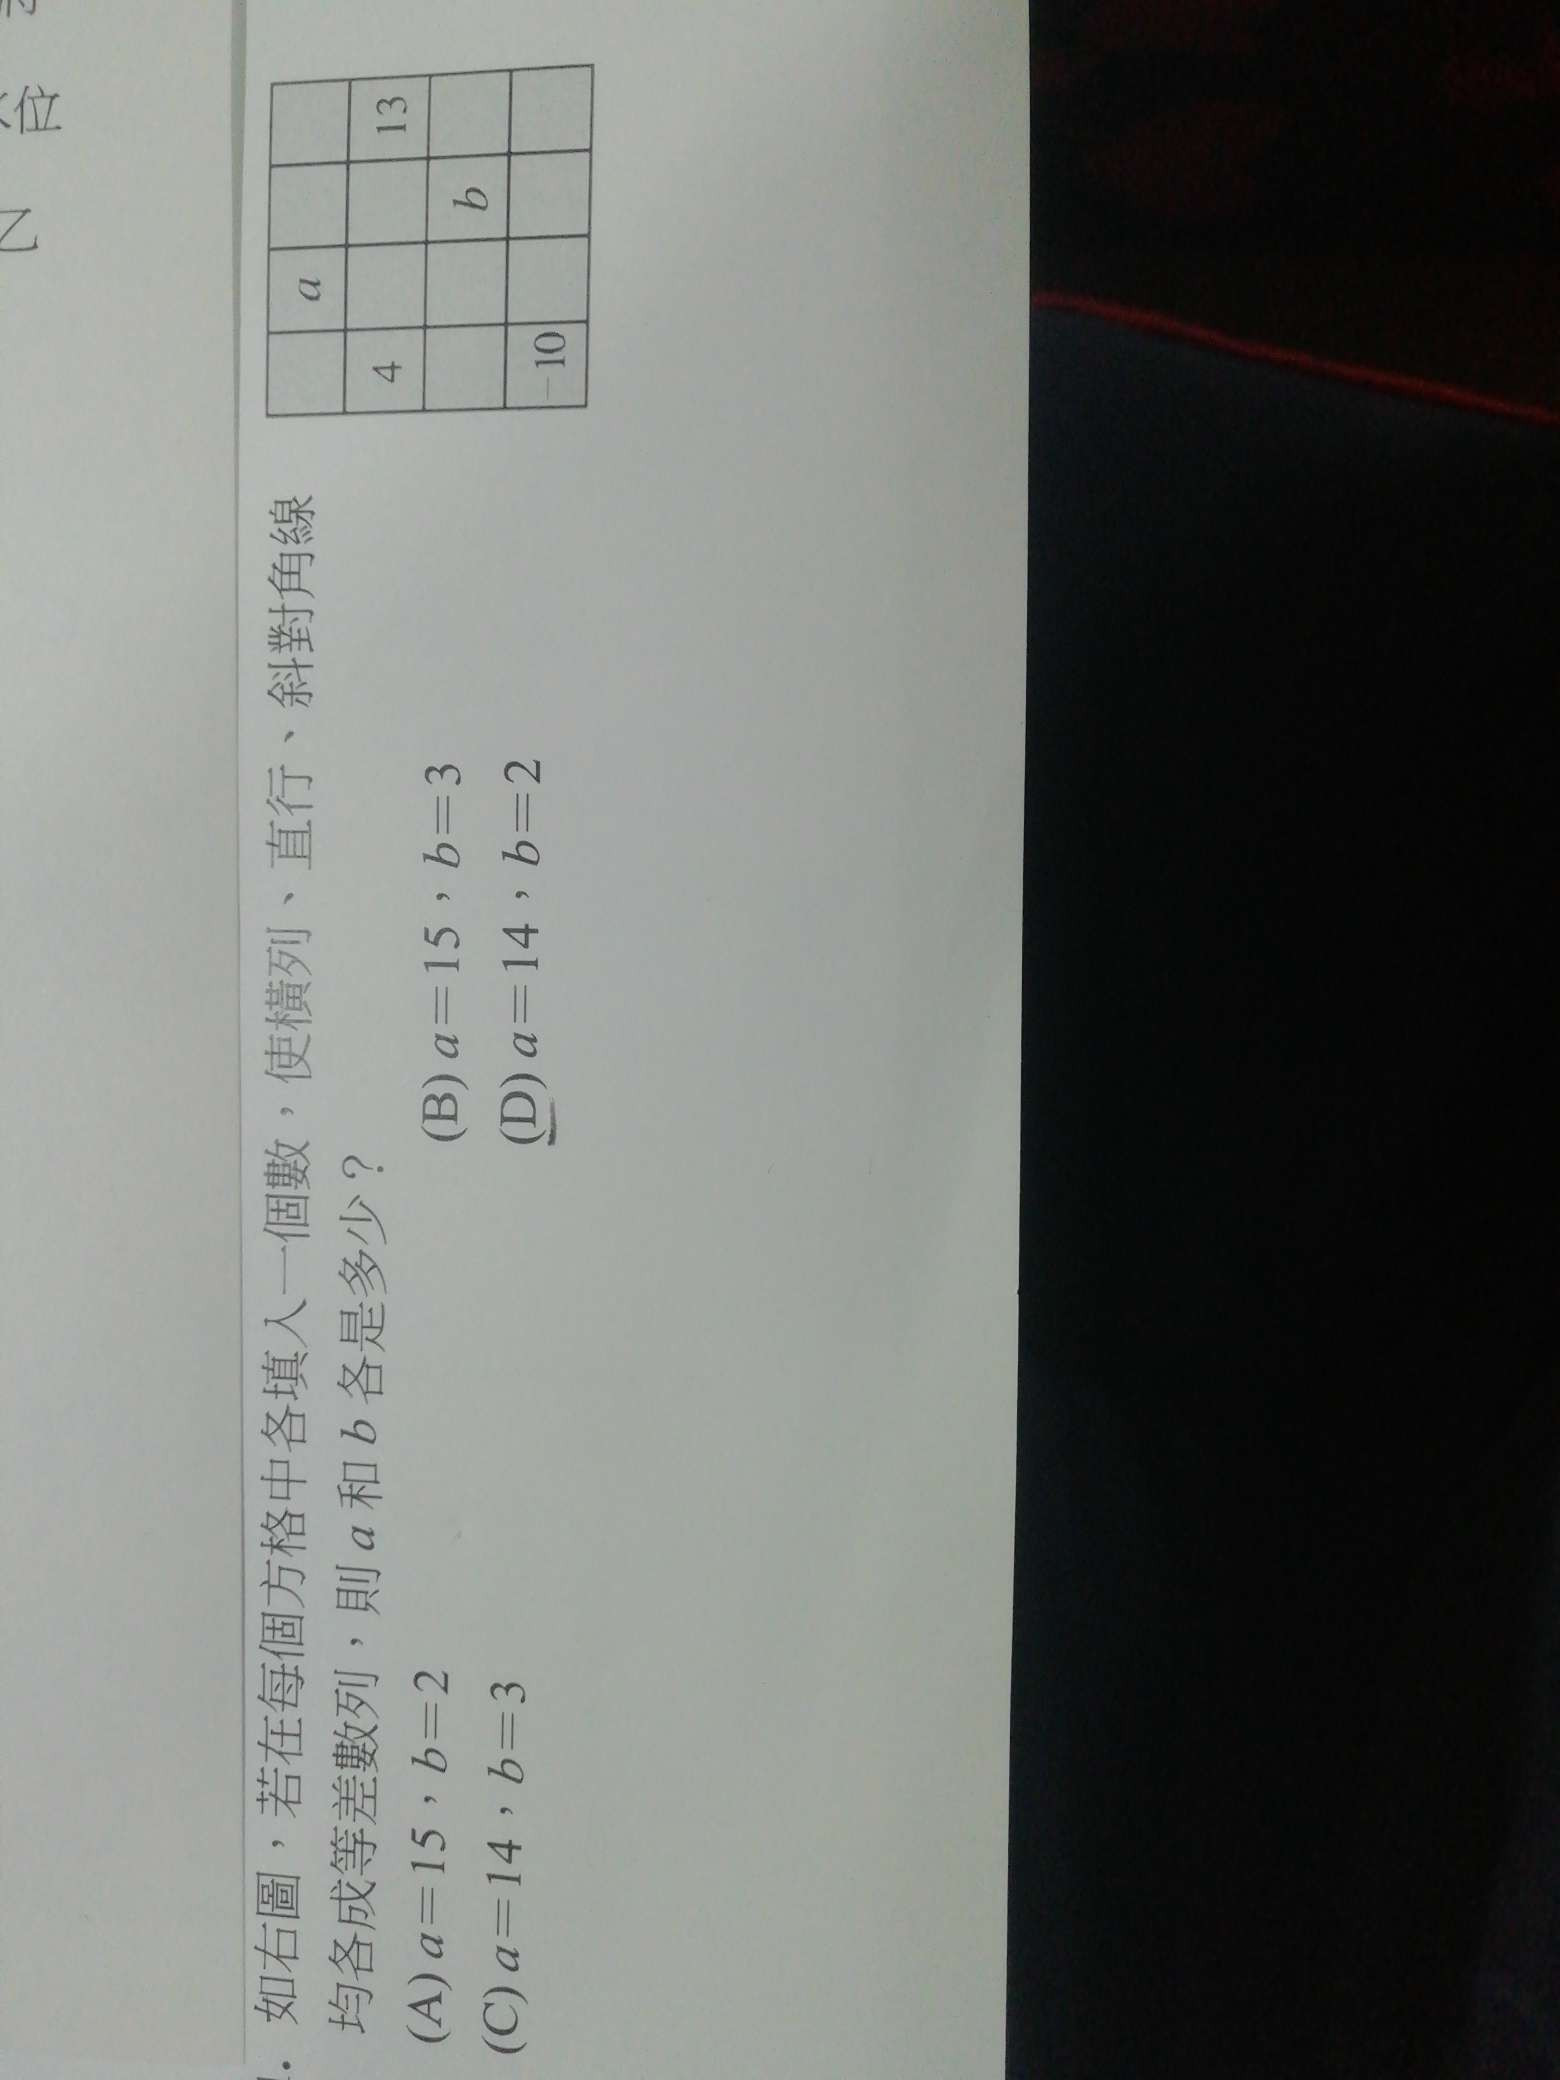 位
乙
如右圖，若在每個方格中各填入一個數，使橫列、直行、斜對角線
均各成等差數列，則 a 和 b 各是多少？
(A) a=15，b=2
(B) a=15，b=3
(C) a=14，b=3
(D) a=14，b=2
a
4 13
b
－10